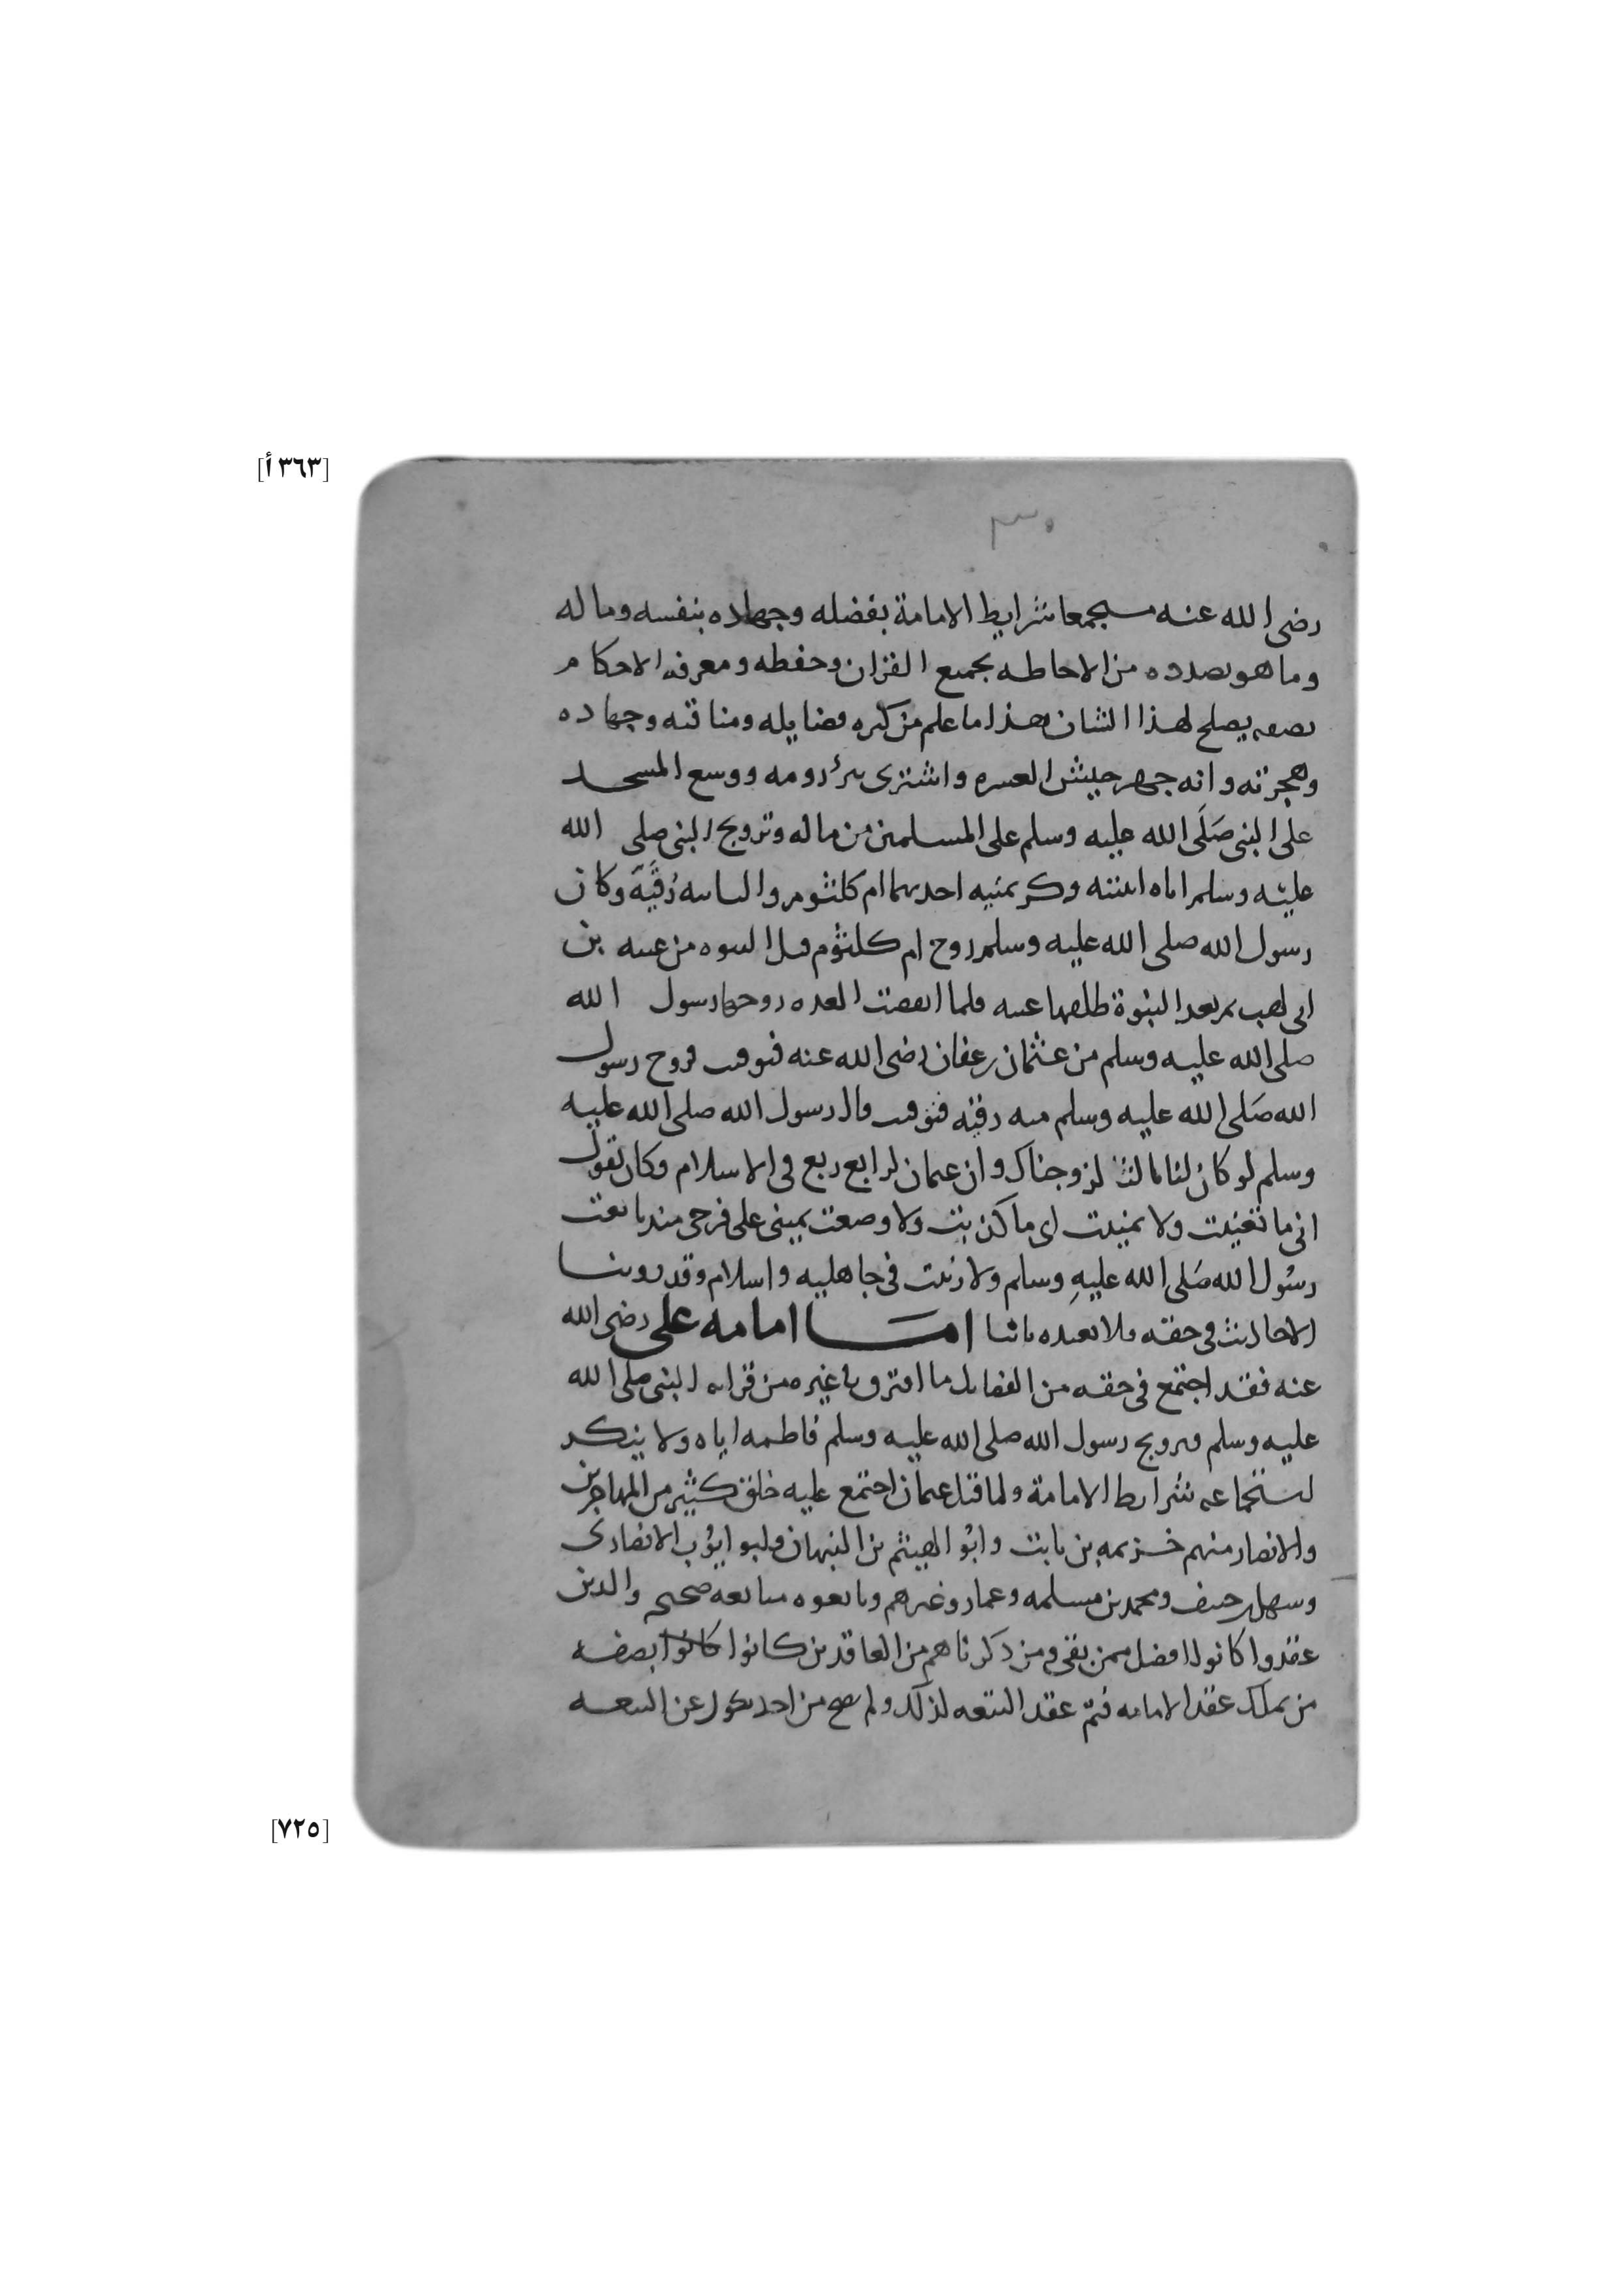 [٣٦٣ أ]
٣٠
رضى الله عنه مستجمعا شرايط الامامة بفضله وجهاده بنفسه وماله
وما هو بصدده من الاحاطه بجميع القران وحفظه ومعرفه الاحكام
بصفه يصلح لهذا الشان هذا ما علم من كثره فضايله ومناقبه وجهاده
وهجرته وانه جهز جيش العسره واشترى بئر رومه ووسع المسجد
على النبى صَلَى الله عليه وسلم على المسلمين من ماله وتزويج النبى صلى الله
عليه وسلم اياه ابنته وكريمتيه احديهما ام كلثوم والثانيه رُقيَّة وكان
رسول الله صلى الله عليه وسلم زوج ام كلثوم قبل النبوه من عتبه بن
ابى لهب ثم بعد النبوة طلقها عتبه فلما انقضت العده زوجها رسول الله
صلى الله عليه وسلم من عثمان بن عفان رضى الله عنه فتوفيت فزوج رسول
الله صَلى الله عليه وسلم منه رقيه فتوفيت قال رسول الله صلى الله عليه
وسلم لو كان لنا ثالثة لزوجناك وان عثمان لرابع ربع فى الاسلام وكان يقول
انى ما تغنيت ولا تمنيت اى ما كذبت ولا وضعت يمينى على فرجى منذ بايعت
رسُول الله صَلى الله عليهِ وسلم ولا زنيت فى جاهليه واسلام وقد روينا
الاحاديث فى حقه فلا نعيده ثانيا امَــا امامه على رضى الله
عنه فقد اجتمع فى حقه من الفضايل ما افترق فى غيره من قرابه النبى صلى الله
عليه وسلم وتزويج رسول الله صلى الله عليه وسلم فاطمه اياه ولا ينكر
استجماعه شرايط الامامة ولما قتل عثمان اجتمع عليه خلق كثير من المهاجرين
والانصار منهم خزيمه بن ثابت وابُو الهيثم بن التيهان وابو ايُوب الانصارى
وسهل بن حنيف ومحمد بن مسلمه وعمار وغيرهم وبايعوه مبايعه صحيحه والدين
عقدوا كانوا افضل ممن بقى ومن ذكرناهم من العاقدين كانوا كانوا بصفه
من يملك عقد الامامه فتمّ عقد البيعه لذلك ولم يصح من احد نكول عن البيعه
[٧٢٥]